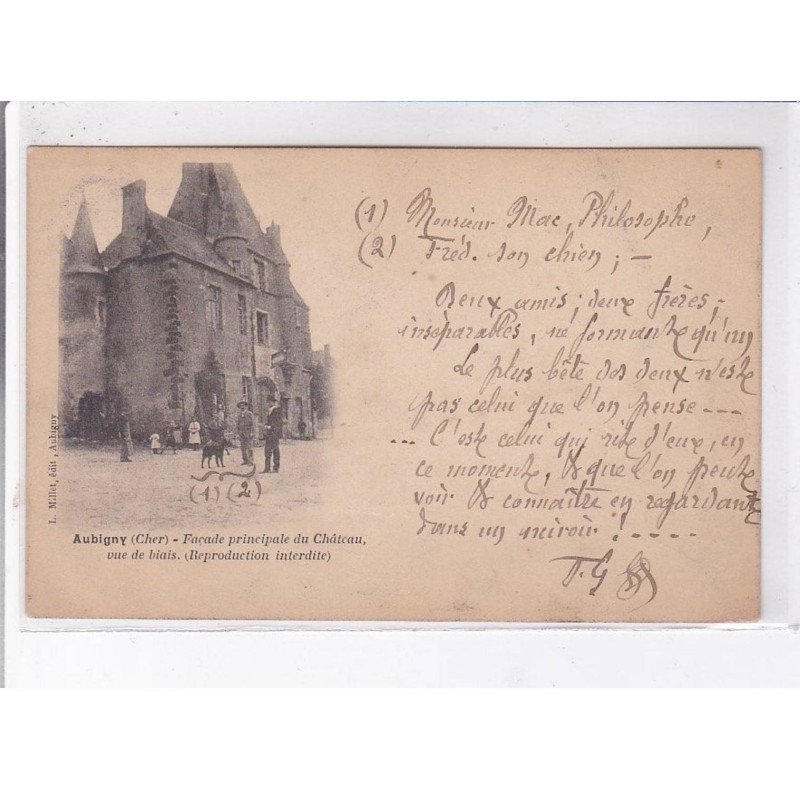 (1) Monsieur Mac, Philosophe,
(2) Fréd. son chien ; —
Deux amis ; deux frères ;
inséparables, ne formante qu'un
Le plus bête des deux n'este
pas celui que l'on pense ---
--- C'este celui qui rite d'eux, en
ce momente, & que l'on peute
voir & connaître en regardante
dans un miroir ! -----
T. G
(1) (2)
L. Millet, édit., Aubigny
Aubigny (Cher) - Façade principale du Château,
vue de biais. (Reproduction interdite)